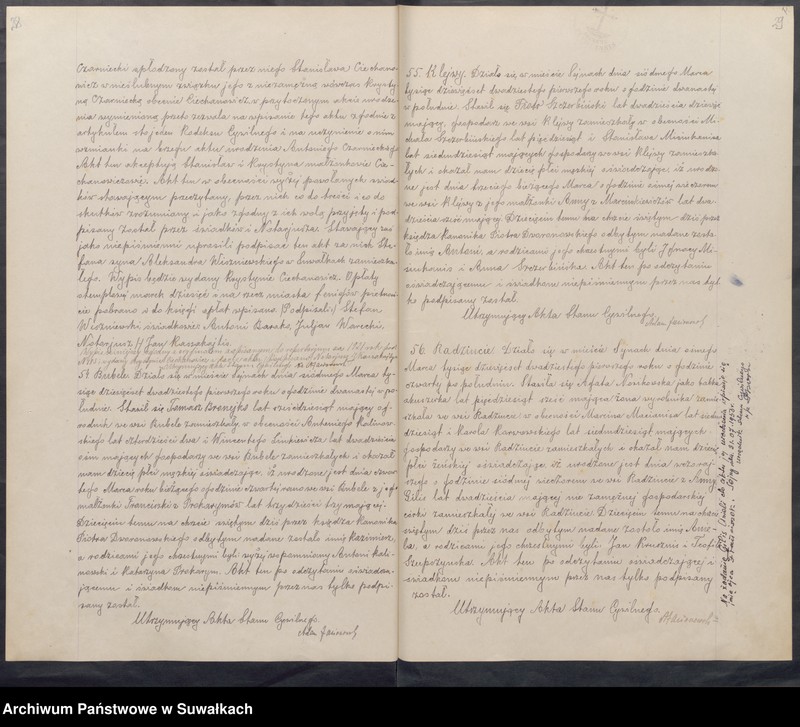 28
Czarniecki spłodzony został przez niego Stanisława Ciechano-
wicz w nieślubnym związku jego z niezamężną wówczas Krysty-
ną Czarniecką obecnie Ciechanowicz w przytoczonym akcie urodze-
nia wymienioną przeto zezwala na wpisanie tego aktu zgodnie z
artykułem sto jeden Kodeksu Cywilnego i na uczynienie o nim
wzmianki na brzegu aktu urodzenia Antoniego Czarnieckiego
Akt ten akceptują Stanisław i Krystyna małżonkowie Cie-
chanowiczowie. Akt ten w obecności wyżej powołanych świad-
ków stawającym przeczytany, przez nich co do treści i co do
skutków zrozumiany i jako zgodny z ich wolą przyjęty i pod-
pisany został przez świadków i Notarjusza. Stawający zaś
jako niepiśmienni uprosili podpisać ten akt za nich Ste-
fana syna Aleksandra Wiszniewskiego w Suwałkach zamieszka-
łego. Wypis będzie wydany Krystynie Ciechanowicz. Opłaty
stemplowej marek dziesięć a na rzecz miasta fenigów piętnaś-
cie pobrano i do księgi opłat wpisano (Podpisali:) Stefan
Wiszniewski świadkowie Antoni Barska, Juljan Warecki,
Notarjusz (-) Jan Kassakajtis
54. Bubele. Działo się w mieście Sejnach dnia siódmego Marca ty-
siąc dziewięćset dwudziestego pierwszego roku o godzinie dwunastej w po-
łudnie. Stawił się Tomasz Brozyks lat osiemdziesiąt mający og-
rodnik we wsi Bubele zamieszkały, w obecności Antoniego Kalinow-
skiego lat czterdzieści dwa i Wincentego Linkiewicza lat dwadzieścia
osiem mających gospodarzy we wsi Bubele zamieszkałych i okazał
nam dziecię płci męskiej oświadczając iż urodzone jest dnia czwar-
tego Marca roku bieżącego o godzinie czwartej rano we wsi Bubele z jego
małżonki Franciszki z Prokarymów lat trzydzieści trzy mającej.
Dziecięciu temu na chrzcie świętym dziś przez księdza Kanonika
Piotra Dworanowskiego odbytym nadane zostało imię Kazimierz,
a rodzicami jego chrzestnymi byli wyżej wspomniany Antoni Kali-
nowski i Katarzyna Prokarym. Akt ten po odczytaniu oświadcza-
jącemu i świadkom niepiśmiennym przez nas tylko podpi-
sany został.
Utrzymujący Akta Stanu Cywilnego.
29
55. Klejwy. Działo się w mieście Sejnach dnia siódmego Marca
tysiąc dziewięćset dwudziestego pierwszego roku o godzinie dwunastej
w południe. Stawił się Piotr Szczerbiński lat dwadzieścia dziewięć
mający, gospodarz we wsi Klejwy zamieszkały w obecności Mi-
chała Szczerbińskiego lat pięćdziesiąt i Stanisława Misiukanisa
lat siedmdziesiąt mających gospodarzy we wsi Klejwy zamieszka-
łych i okazał nam dziecię płci męskiej oświadczając, iż urodzo-
ne jest dnia trzeciego bieżącego Marca o godzinie ósmej wieczorem
we wsi Klejwy z jego małżonki Anny z Marcinkiewiczów lat dwa-
dzieścia sześć mającej. Dziecięciu temu na chrzcie świętym dziś przez
księdza Kanonika Piotra Dworanowskiego odbytym nadane zosta-
ło imię Antoni, a rodzicami jego chrzestnymi byli Ignacy Mi-
siukanis i Anna Szczerbińska. Akt ten po odczytaniu
oświadczającemu i świadkom niepiśmiennym przez nas tyl-
ko podpisany został.
Utrzymujący Akta Stanu Cywilnego.
56. Radziucie Działo się w mieście Sejnach dnia ósmego
Marca tysiąc dziewięćset dwudziestego pierwszego roku o godzinie
czwartej po południu. Stawiła się Agata Nowikowska jako babka
akuszerka lat pięćdziesiąt sześć mająca żona wyrobnika zamie-
szkała we wsi Radziucie w obecności Marcina Macianisa lat siedm-
dziesiąt i Karola Karwowskiego lat siedmdziesiąt mających
gospodarzy we wsi Radziucie zamieszkałych i okazał nam dziecię
płci żeńskiej oświadczając, iż urodzone jest dnia wczoraj-
szego o godzinie siódmej wieczorem we wsi Radziucie z Anny
Gilis lat dwadzieścia mającej nie zamężnej gospodarskiej
córki zamieszkałej we wsi Radziucie. Dziecięciu temu na chrzcie
świętym dziś przez nas odbytym nadane zostało imię Anie-
la, a rodzicami jego chrzestnymi byli Jan i Teofila
Szupszyńska. Akt ten po odczytaniu oświadczającej i
świadkom niepiśmiennym przez nas tylko podpisany
został.
Utrzymujący Akta Stanu Cywilnego.
Archiwum Państwowe w Suwałkach